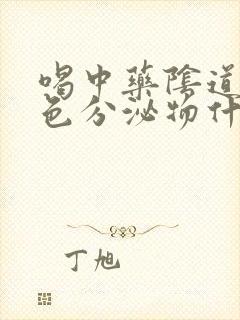 喝中藥陰道
色分泌物什
丁旭